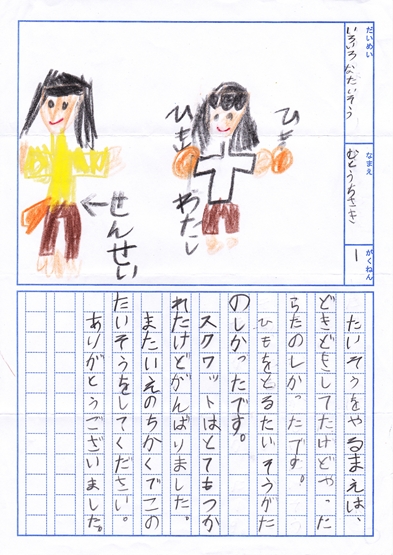 だいめい
いろいろなたいそう
なまえ
むとうちさき
がくねん
1
ひも
ひも
わたし
せんせい
たいそうをやるまえは、
どきどきしてたけどやった
らたのしかったです。
ひもをとるたいそうがた
のしかったです。
スクワットはとてもつか
れたけどがんばりました。
またいえのちかくでこの
たいそうをしてください。
ありがとうございました。